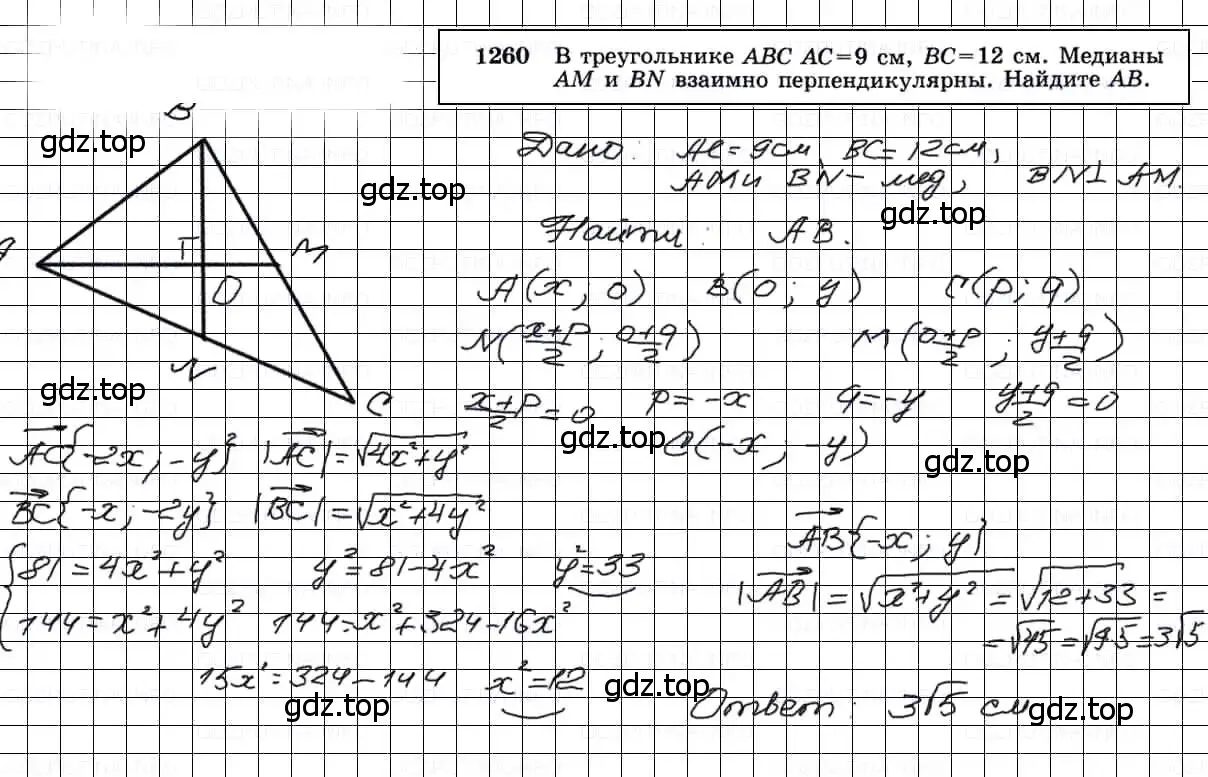 1260 В треугольнике ABC AC=9 см, BC=12 см. Медианы
AM и BN взаимно перпендикулярны. Найдите AB.
B
gdz.top
Дано: AC = 9см, BC = 12см,
gdz.top
AM и BN – мед, BN⊥AM.
gdz.top
Найти: AB.
A
M
O
A(x; 0) B(0; y) C(p; q)
N(x+p/2; 0+q/2) M(0+p/2; y+q/2)
N
gdz.top
C
x+p/2 = 0 p = -x q = -y y+q/2 = 0
gdz.top
C(-x; -y)
gdz.top
AC{-2x; -y} |AC| = √4x²+y²
BC{-x; -2y} |BC| = √x²+4y²
AB{-x; y}
81 = 4x²+y² y² = 81-4x² y² = 33
|AB| = √x²+y² = √12+33 =
144 = x²+4y² 144 = x²+324-16x²
= √45 = √9·5 = 3√5
15x² = 324-144 x² = 12
gdz.top
gdz.top
Ответ: 3√5 см
gdz.top